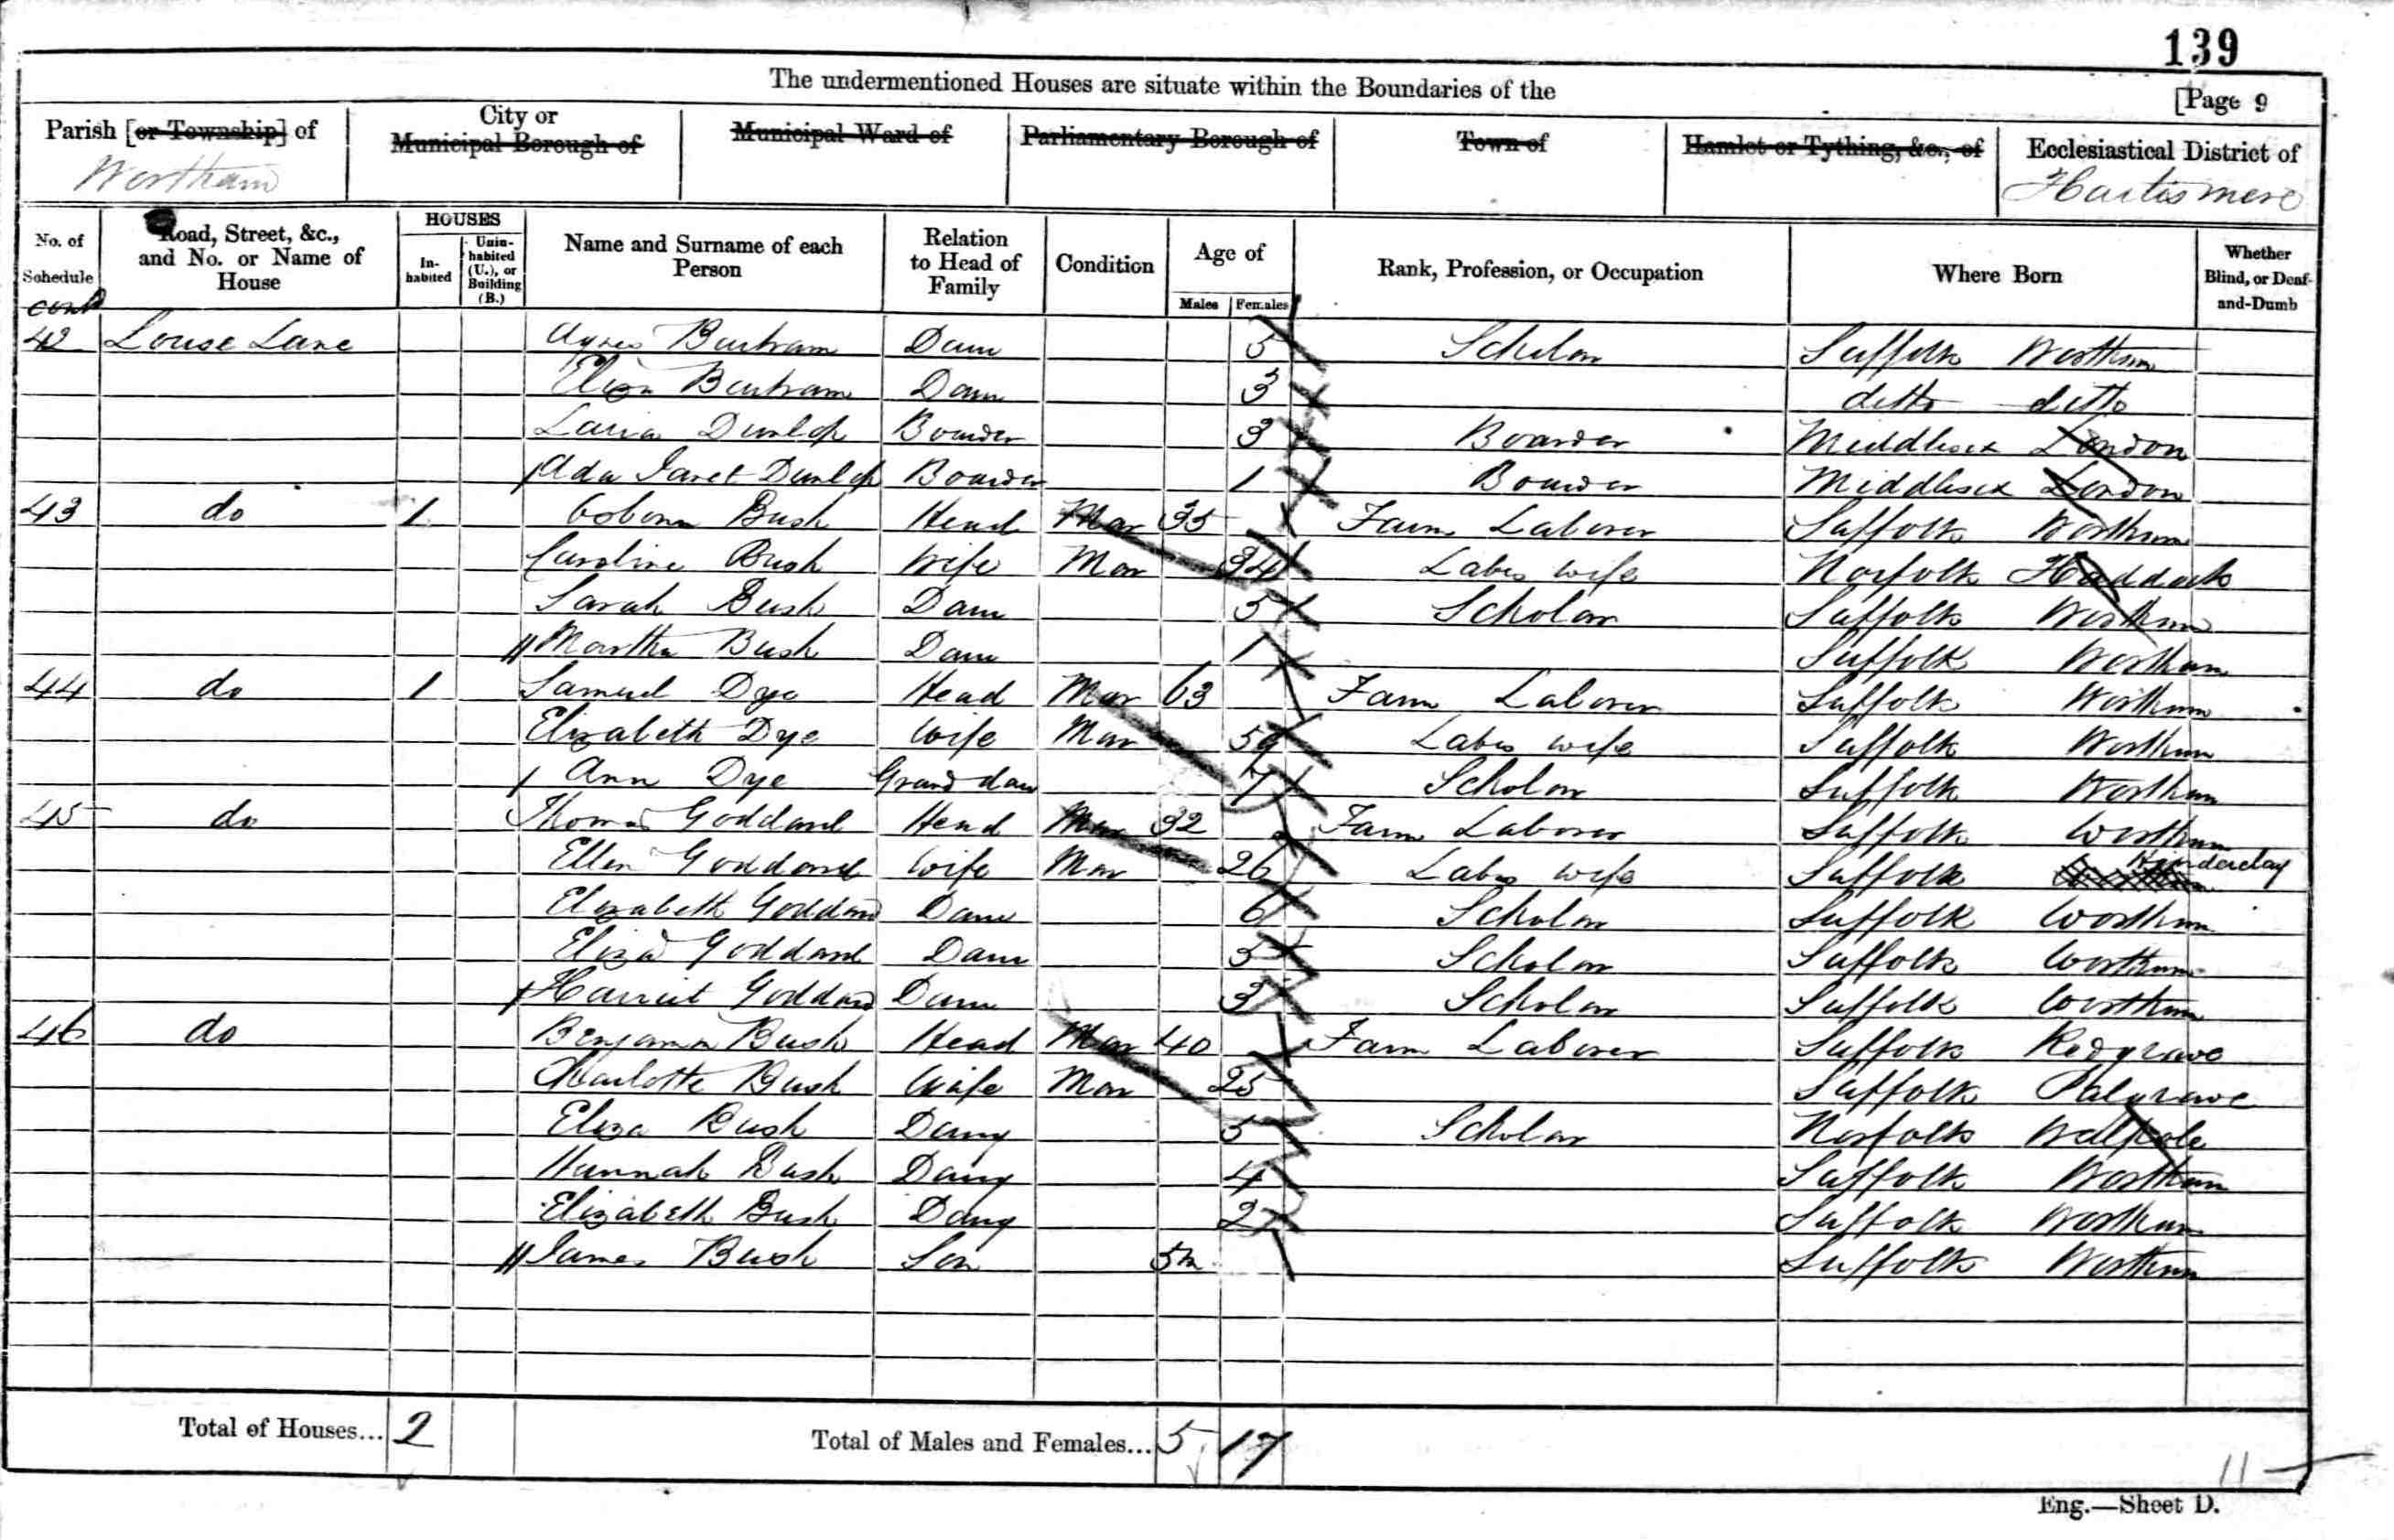 139
The undermentioned Houses are situate within the Boundaries of the
[Page 9
Parish [or Township] of
Wortham
City or
Municipal Borough of
Municipal Ward of
Parliamentary Borough of
Town of
Hamlet or Tything, &c., of
Ecclesiastical District of
Hartismere
No. of
Schedule
Road, Street, &c.,
and No. or Name of
House
HOUSES
In-
habited
Unin-
habited
(U.), or
Building
(B.)
Name and Surname of each
Person
Relation
to Head of
Family
Condition
Age of
Males
Females
Rank, Profession, or Occupation
Where Born
Whether
Blind, or Deaf-
and-Dumb
cont
42 Louse Lane Agnes Bartram Daur 5 Scholar Suffolk Wortham
Eliza Bartram Daur 3 ditto ditto
Dunlop Boarder 3 Boarder Middlesex London
Ada Janet Dunlop Boarder 1 Boarder Middlesex London
43 do 1 Osborn Bush Head Mar 35 Farm Laborer Suffolk Wortham
Caroline Bush Wife Mar 34 Labrs wife Norfolk
Sarah Bush Daur 5 Scholar Suffolk Wortham
Martha Bush Daur 1 Suffolk Wortham
44 do 1 Samuel Dye Head Mar 63 Farm Laborer Suffolk Wortham
Elizabeth Dye Wife Mar 59 Labrs wife Suffolk Wortham
Ann Dye Grand daur 7 Scholar Suffolk Wortham
45 do Thomas Goddard Head Mar 32 Farm Laborer Suffolk Wortham
Ellen Goddard Wife Mar 26 Labrs wife Suffolk Hinderclay
Elizabeth Goddard Daur 6 Scholar Suffolk Wortham
Eliza Goddard Daur 5 Scholar Suffolk Wortham
Harriet Goddard Daur 3 Scholar Suffolk Wortham
46 do Benjamin Bush Head Mar 40 Farm Laborer Suffolk Redgrave
Charlotte Bush Wife Mar 25 Suffolk Palgrave
Eliza Bush Daug 5 Scholar Norfolk Walpole
Hannah Bush Daug 4 Suffolk Wortham
Elizabeth Bush Daug 2 Suffolk Wortham
James Bush Son 5m Suffolk Wortham
Total of Houses... 2
Total of Males and Females... 5 17
11
Eng.—Sheet D.